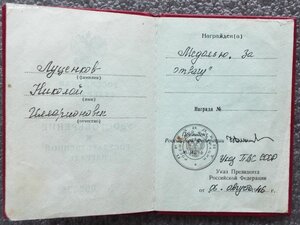 Луценков
(фамилия)
Николай
(имя)
Илларионович
(отчество)
Награжден(а)
Медалью „За
отвагу"
Награда №
Президент
Российской Федерации
Указ ПВС СССР
Указ Президента
Российской Федерации
от 06. августа 46 г.